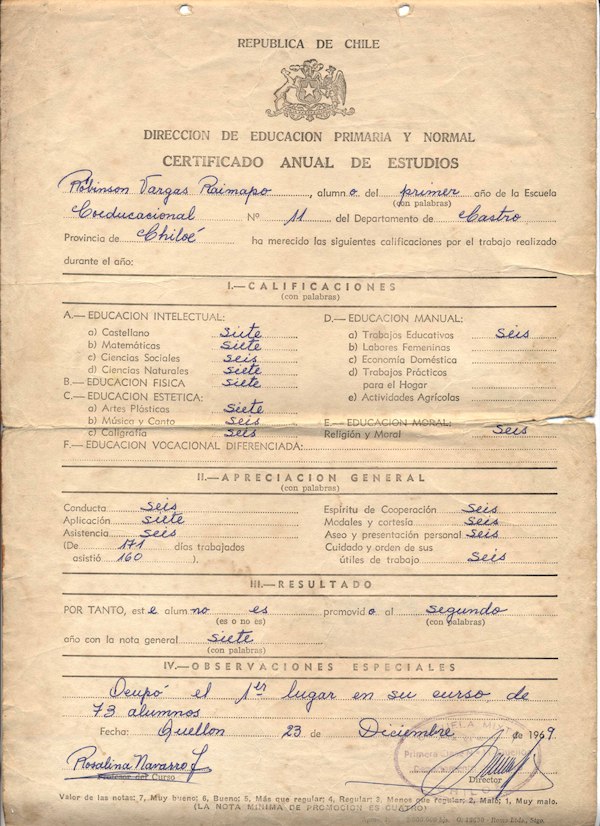 REPUBLICA DE CHILE
DIRECCION DE EDUCACION PRIMARIA Y NORMAL
CERTIFICADO ANUAL DE ESTUDIOS
Róbinson Vargas Raimapo, alumno del primer año de la Escuela
(con palabras)
Coeducacional Nº 11 del Departamento de Castro
Provincia de Chiloé ha merecido las siguientes calificaciones por el trabajo realizado
durante el año:
I.—CALIFICACIONES
(con palabras)
A.—EDUCACION INTELECTUAL:
a) Castellano siete
b) Matemáticas siete
c) Ciencias Sociales seis
d) Ciencias Naturales siete
B.—EDUCACION FISICA siete
C.—EDUCACION ESTETICA:
a) Artes Plásticas siete
b) Música y Canto seis
c) Caligrafía seis
D.—EDUCACION MANUAL:
a) Trabajos Educativos seis
b) Labores Femeninas
c) Economía Doméstica
d) Trabajos Prácticos
para el Hogar
e) Actividades Agrícolas
E.—EDUCACION MORAL:
Religión y Moral seis
F.—EDUCACION VOCACIONAL DIFERENCIADA:
II.—APRECIACION GENERAL
(con palabras)
Conducta seis
Aplicación siete
Asistencia seis
(De 171 días trabajados
asistió 160)
Espíritu de Cooperación seis
Modales y cortesía seis
Aseo y presentación personal seis
Cuidado y orden de sus
útiles de trabajo seis
III.—RESULTADO
POR TANTO, este alumno es promovido al segundo
(es o no es) (con palabras)
año con la nota general siete
(con palabras)
IV.—OBSERVACIONES ESPECIALES
Ocupó el 1er lugar en su curso, de
73 alumnos
Fecha: Quellon 23 de Diciembre de 1969.
Rosalina Navarro J
Profesor del Curso
Director
CHILOE
Valor de las notas: 7, Muy bueno; 6, Bueno; 5, Más que regular; 4, Regular; 3, Menos que regular; 2, Malo; 1, Muy malo.
(LA NOTA MINIMA DE PROMOCION ES CUATRO)